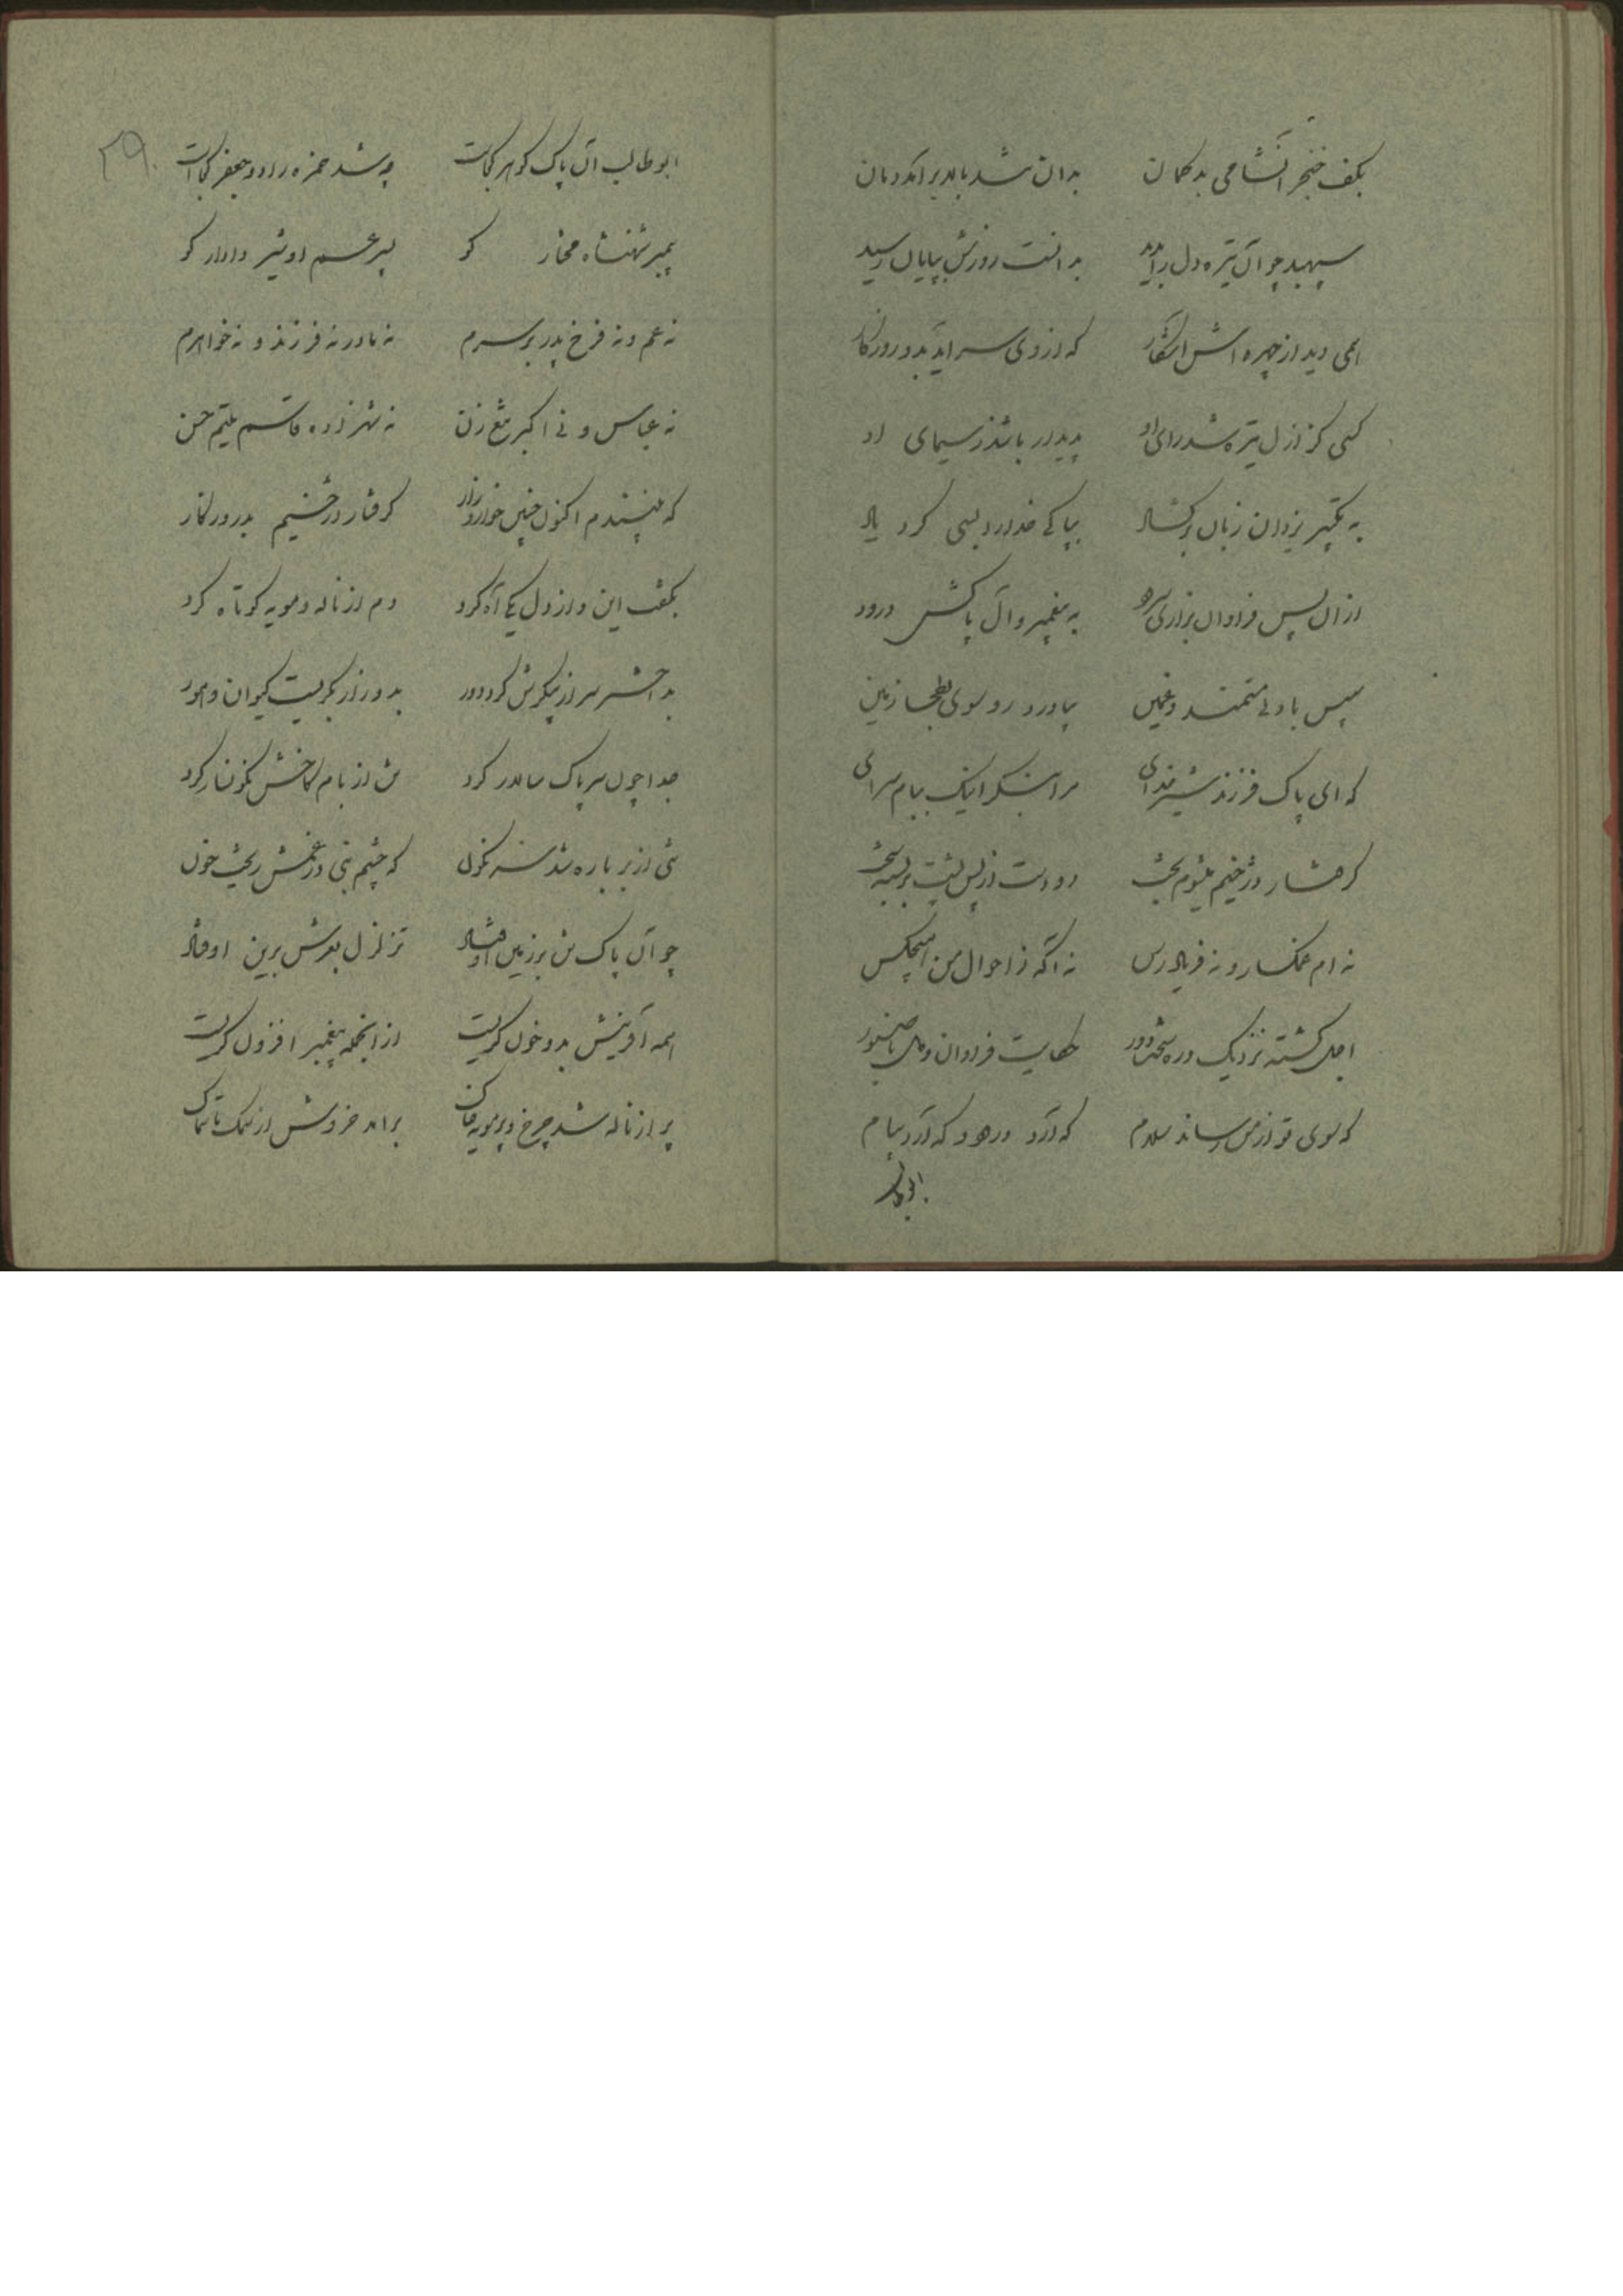 بکف خنجر آنشامی بدکمان بدان شد بالا بر آمد دمان
سپهبد چو آن تیره دل را بدید بدانست روزش بپایان رسید
همی دید از چهره اش آشکار که از وی سر آید بدو روزگار
کسی کز ازل تیره شد رای او پدیدار باشد ز سیمای او
به تکبیر یزدان زبان برگشاد بپاکی خدا را بسی کرد یاد
از آن پس فراوان بزاری سرود به پیغمبر و آل پاکش درود
سپس با دلی مستمند و غمین بیاورد رو سوی بطحا زمین
که ای پاک فرزند شیر خدای مرا بنگر اینک ببام سرای
گرفتار دژخیم میشوم بخت دو دست از پس پشت بر بسته سخت
نه ام غمگسار و نه فریادرس نه آگه ز احوال من هیچکس
اجل گشته نزدیک و ره سخت دور حکایت فراوان و دل ناصبور
که سوی تو از من رساند سلام که آرد درود و که آرد پیام
ابوطالب
ابوطالب آن پاک گوهر کجاست چه شد حمزه راد و جعفر کجاست
پیمبر شهنشاه مختار کو پسر عم او شیر دادار کو
نه عم و نه فرخ پدر بر سرم نه مادر نه فرزند و نه خواهرم
نه عباس و نی اکبر تیغ زن نه شهزاده قاسم یتیم حسن
که نپسندم اکنون چنین خوار و زار گرفتار دژخیم بد روزگار
بگفت این و از دل یکی آه کرد دم از ناله و مویه کوتاه کرد
بد اختر سر از پیکرش کرد دور بدو زار بگریست کیوان و هور
جدا چون سر پاک سالار کرد تن از بام کاخش نگونسار کرد
تنی از بر باره شد سرنگون که چشم نبی در غمش ریخت خون
چو آن پاک تن بر زمین اوفتاد تزلزل بعرش برین اوفتاد
همه آفرینش بدو خون گریست از آنجمله پیغمبر افزون گریست
پر از ناله شد چرخ و پر مویه خاک بر آمد خروش از سمک تا سماک
۲۹